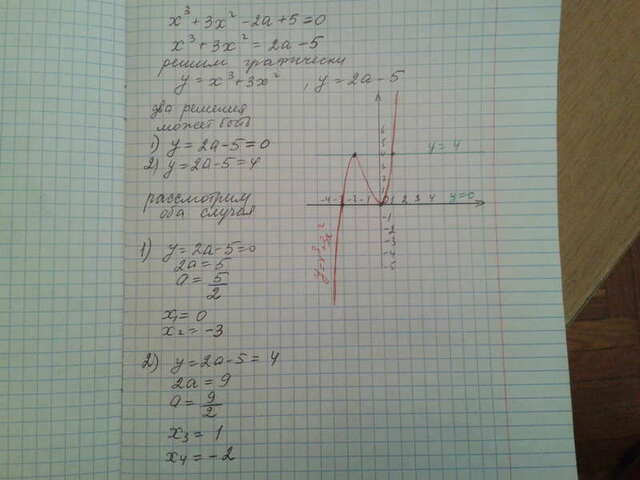 x³ + 3x² - 2a + 5 = 0
x³ + 3x² = 2a - 5
решим графически
y = x³ + 3x² , y = 2a - 5
два решения
может быть
1) y = 2a - 5 = 0
2) y = 2a - 5 = 4
рассмотрим
оба случая
1) y = 2a - 5 = 0
2a = 5
a = 5/2
x₁ = 0
x₂ = -3
2) y = 2a - 5 = 4
2a = 9
a = 9/2
x₃ = 1
x₄ = -2
y = 4
-4 -3 -2 -1 0 1 2 3 4 y=0
-1
-2
-3
-4
-5
y = x³ + 3x²